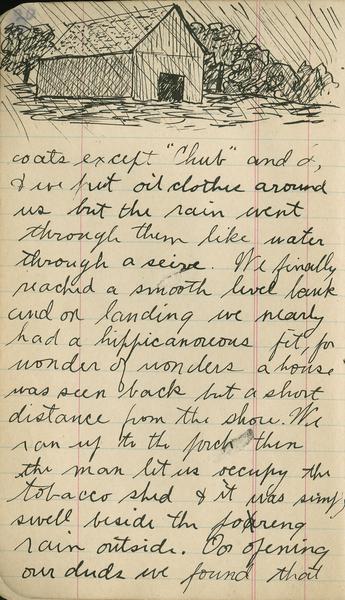 coats except "Chub" and I,
& we put oil clothes around
us but the rain went
through them like water
through a seive. We finally
reached a smooth level bank
and on landing we nearly
had a hippicanoreous fit, for
wonder of wonders a house
was seen back but a short
distance from the shore. We
ran up to the porch then
the man let us occupy the
tobacco shed & it was simply
swell beside the
rain outside. On opening
our duds we found that